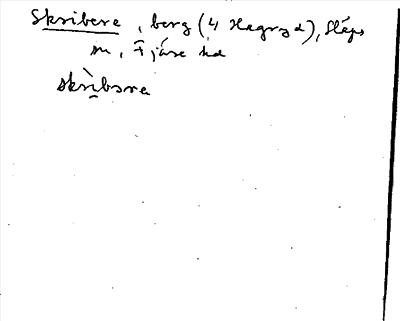 Skribere, berg (4 Hagryd), Släps
sn, Fjäre hd
skrìbəra